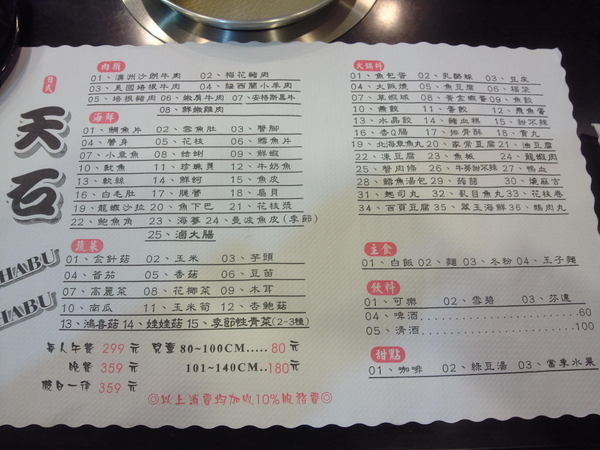 日式
天石
HABU
HABU
肉類
01、澳洲沙朗牛肉 02、梅花豬肉
03、美國培根牛肉 04、紐西蘭小羊肉
05、培根豬肉 06、嫩肩牛肉 07、安格斯黑牛
08、鮮嫩雞肉
海鮮
01、鯛魚片 02、雪魚肚 03、蟹腳
04、蟹身 05、花枝 06、鱈魚片
07、小章魚 08、蛤蜊 09、鮮蝦
10、魷魚 11、珍珠貝 12、牛奶魚
13、軟絲 14、鮮蚵 15、魚皮
16、白毛肚 17、腿管 18、扇貝
19、龍蝦沙拉 20、魚下巴 21、花枝漿
22、鮑魚角 23、海蔘 24、曼波魚皮(季節)
25、滷大腸
蔬菜
01、金針菇 02、玉米 03、芋頭
04、番茄 05、香菇 06、豆苗
07、高麗菜 08、花椰菜 09、木耳
10、南瓜 11、玉米筍 12、杏鮑菇
13、鴻喜菇 14、娃娃菜 15、季節性青菜(2~3種)
每人午餐 299元 兒童 80~100CM.....80元
晚餐 359元 101~140CM...180元
假日一律 359元
◎以上消費均加收10%服務費◎
火鍋料
01、魚包蛋 02、乳酪球 03、豆皮
04、大阪燒 05、魚豆腐 06、福袋
07、草蝦球 08、黃金蝦蛋 09、魚餃
10、燕餃 11、蛋餃 12、熊魚蛋
13、水晶餃 14、豬血糕 15、粉不辣
16、杏Q腸 17、排骨酥 18、貢丸
19、北海章魚丸 20、家常豆腐 21、油豆腐
22、凍豆腐 23、魚板 24、龍蝦肉
25、蟹肉條 26、牛蒡粉不辣 27、鴨血
28、鱈魚湯包 29、蒟蒻 30、燒麻吉
31、起司丸 32、虱目魚丸 33、花枝卷
34、百頁豆腐 35、翠玉海鮮 36、鴨肉丸
主食
01、白飯 02、麵 03、冬粉 04、王子麵
飲料
01、可樂 02、雪碧 03、芬達
04、啤酒..........60
05、清酒..........100
甜點
01、咖啡 02、綠豆湯 03、當季水果